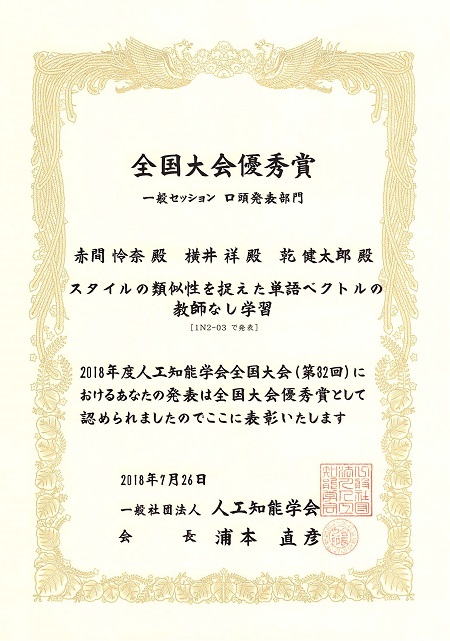 全国大会優秀賞
一般セッション 口頭発表部門
赤間 怜奈 殿 横井 祥 殿 乾 健太郎 殿
スタイルの類似性を捉えた単語ベクトルの
教師なし学習
[1N2-03 で発表]
2018年度人工知能学会全国大会(第32回)に
おけるあなたの発表は全国大会優秀賞として
認められましたのでここに表彰いたします
2018年7月26日
一般社団法人 人工知能学会
会 長 浦本 直彦